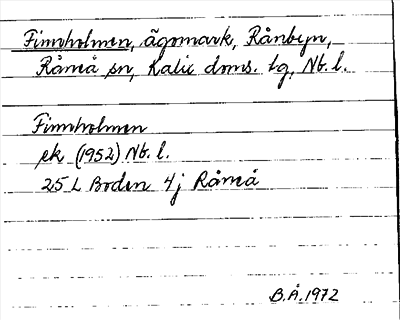 Finnholmen, ägomark, Rånbyn,
Råneå sn, Kalix doms. tg, Nb. l.
Finnholmen
ek (1952) Nb. l.
25 L Boden 4j Råneå
B.Å. 1972